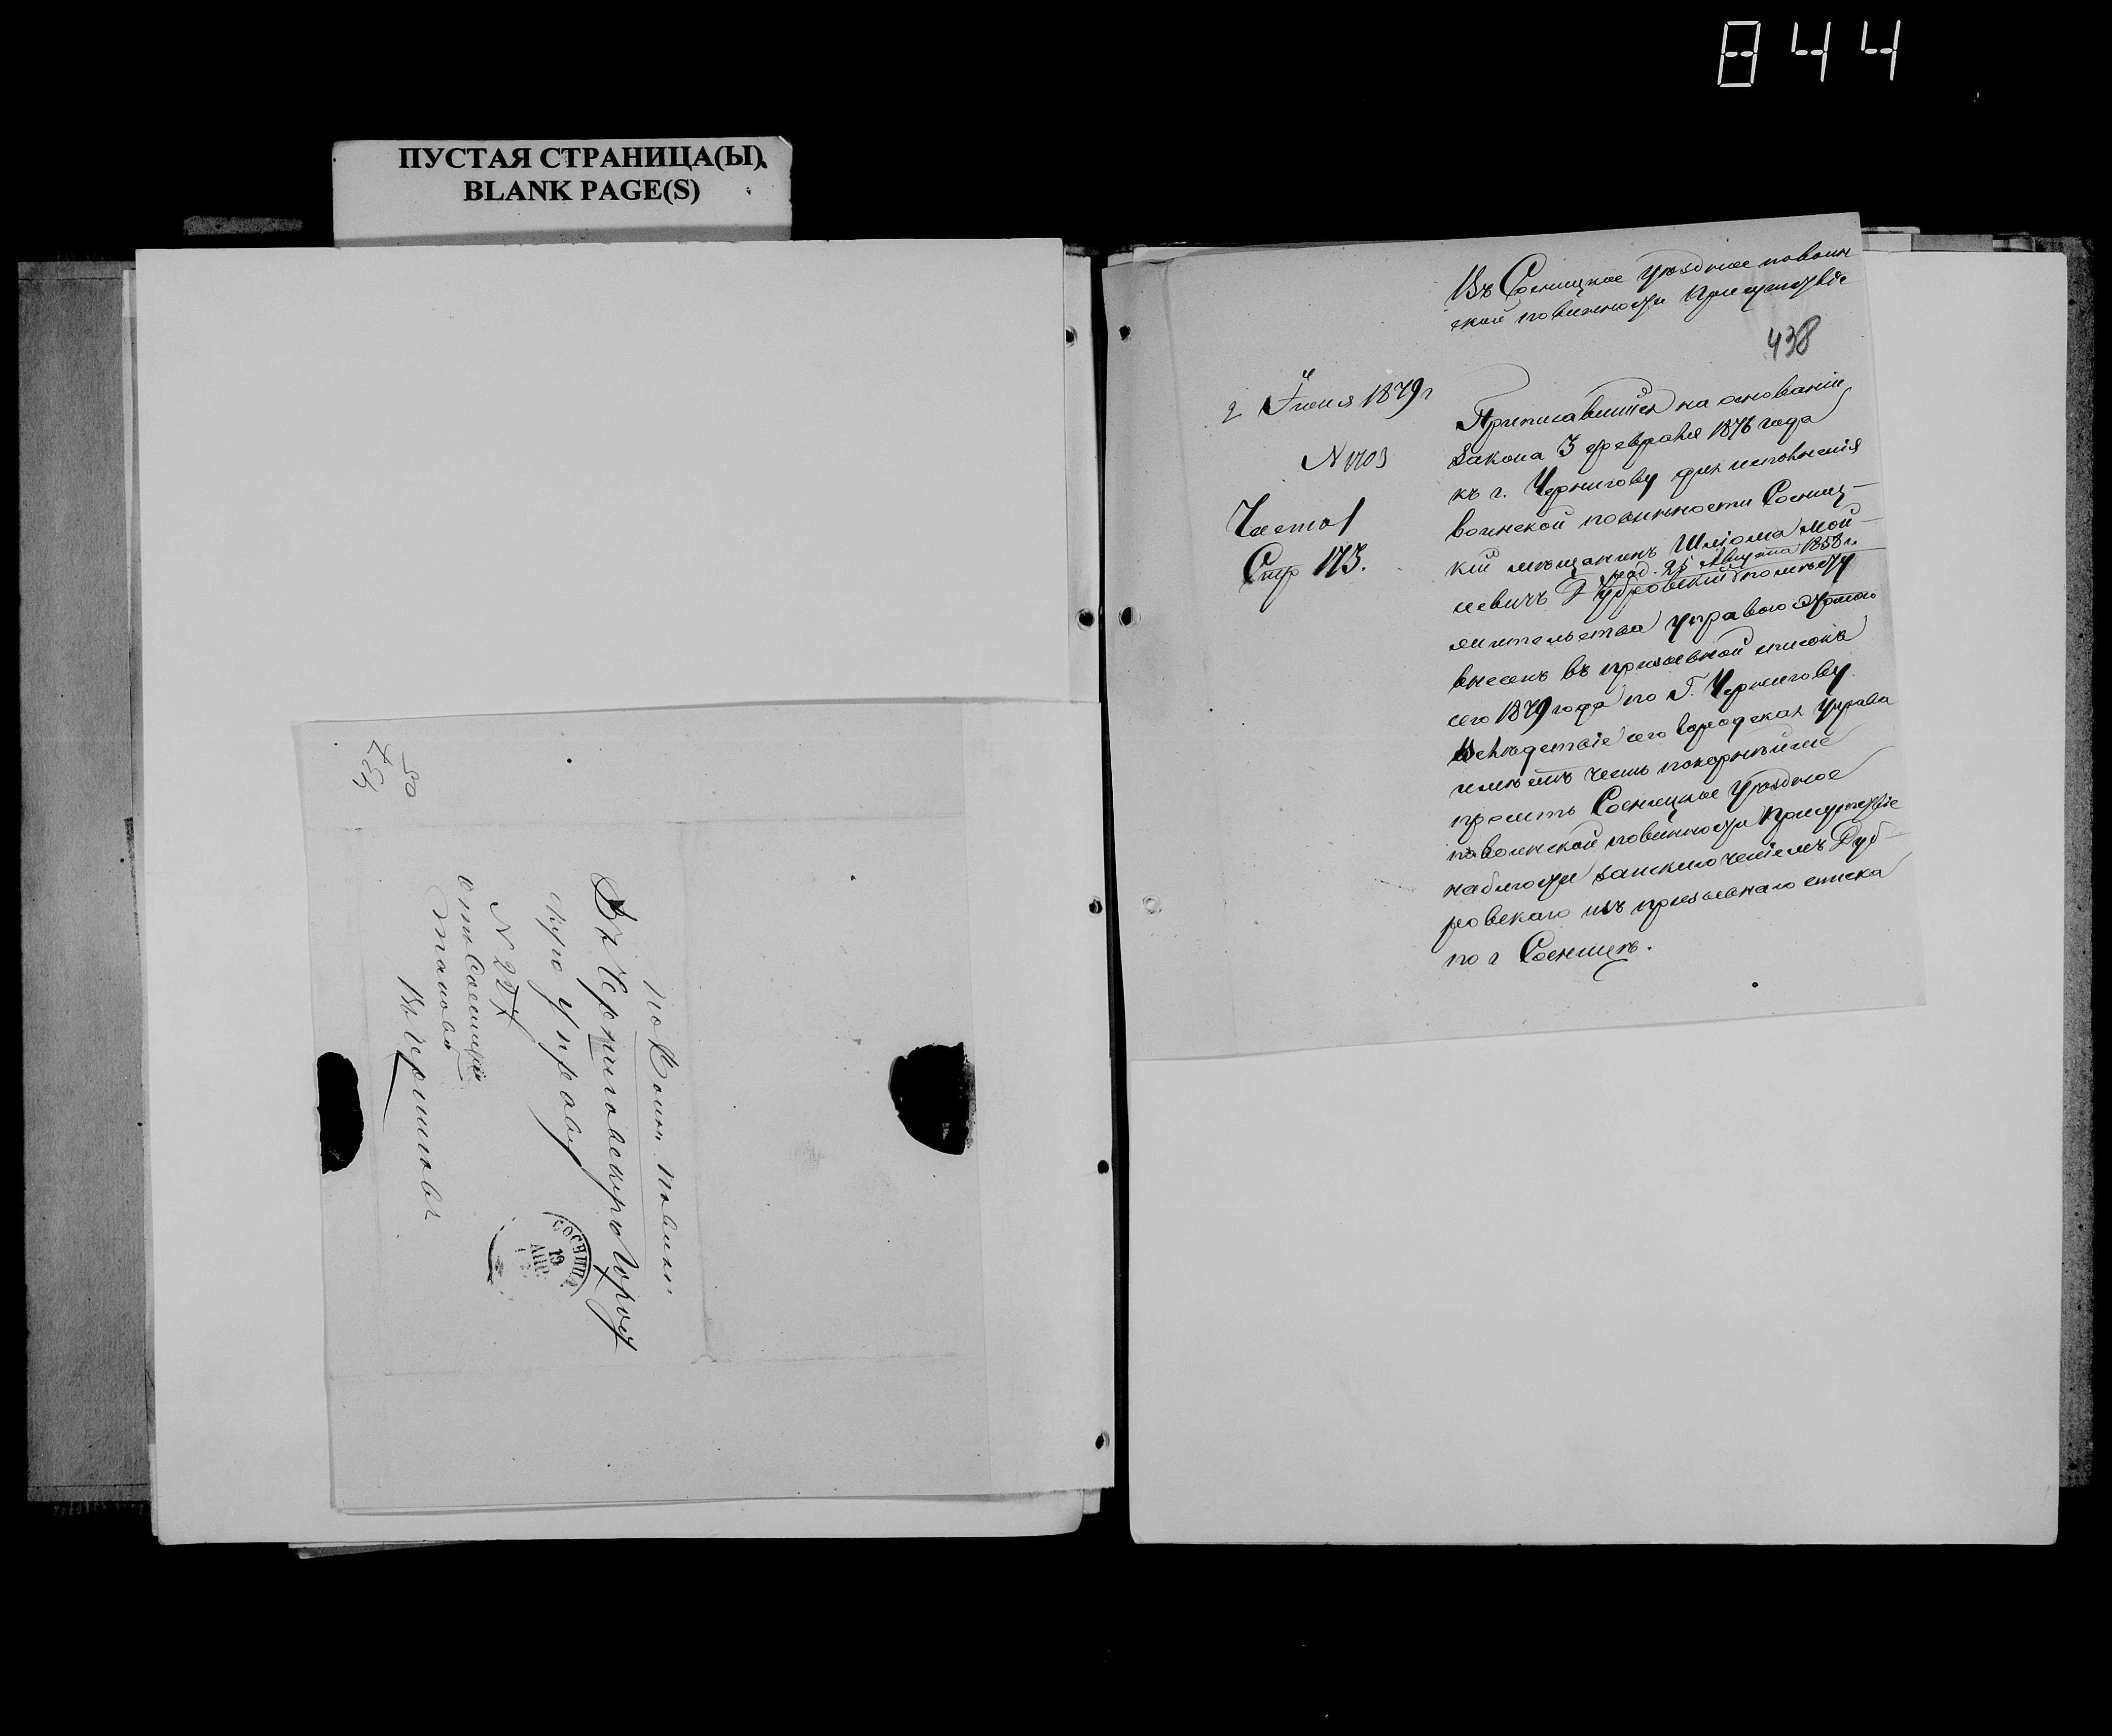 844
ПУСТАЯ СТРАНИЦА(Ы)
BLANK PAGE(S)
По Воин. повин.
Въ Черниговскую Город
скую Управу
N 227
отъ Сосницка
Въ Черниговъ
СОСНИЦА
19
АПР.
Въ Сосницкое Уѣздное по воин
ской повинности Присутствіе
438
2 Іюня 1879 г
N 1703
Часть 1
Стр 173.
Приписавшійся на основаніи
закона 3 февраля 1876 года
къ г. Чернигову для исполненія
воинской повинности Сосниц-
кій мѣщанинъ Шліома Мой-
род. 25 Августа 1858 г.
сеевичъ Дубровскій по мѣсту
жительства Управою этого
внесенъ въ призывной списокъ
сего 1879 года по Г. Чернигову
Вслѣдствіе сего Городская Управа
имѣетъ честь покорнѣйше
просить Сосницкое Уѣздное
по воинской повинности Присутствіе
наблюсти за исключеніемъ Дуб-
ровскаго изъ призывнаго списка
по г Сосницѣ.